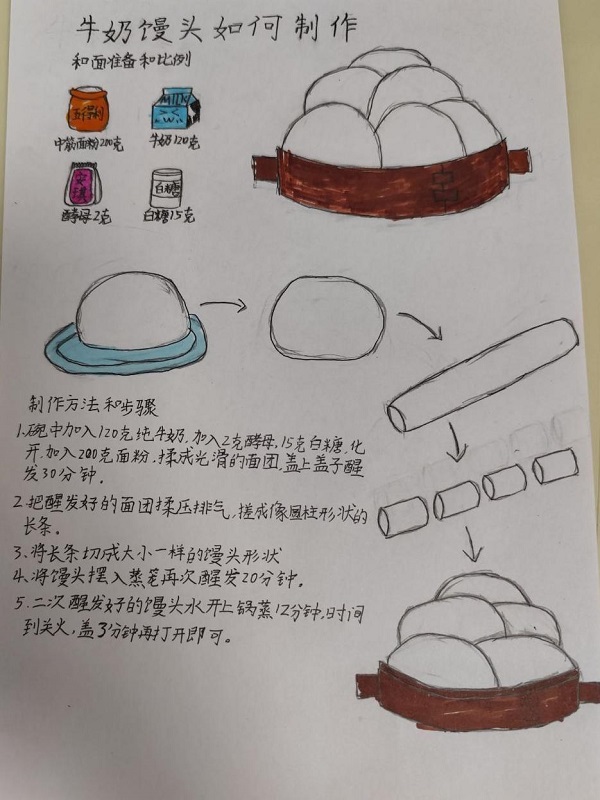 牛奶馒头如何制作
和面准备和比例
五得利
MILK
中筋面粉200克
牛奶120克
安琪
白糖
酵母2克
白糖15克
制作方法和步骤
1.碗中加入120克纯牛奶,加入2克酵母,15克白糖,化
开,加入200克面粉,揉成光滑的面团,盖上盖子醒
发30分钟.
2.把醒发好的面团揉压排气,搓成像圆柱形状的
长条.
3、将长条切成大小一样的馒头形状
4、将馒头摆入蒸笼再次醒发20分钟。
5.二次醒发好的馒头水开上锅蒸12分钟,时间
到关火,盖3分钟再打开即可。